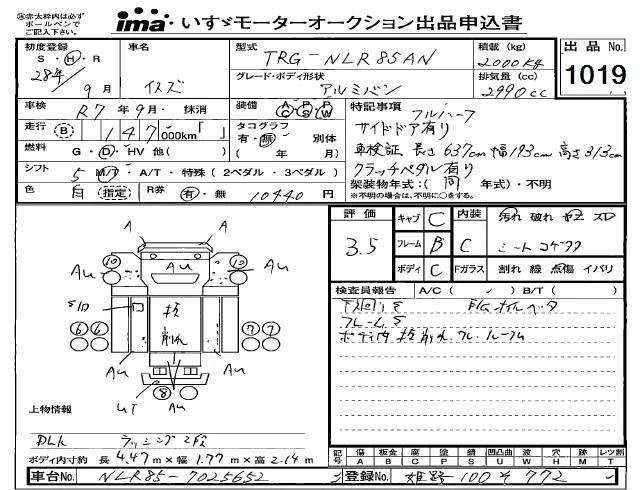 ※赤太枠内は必ず
ボールペンで
ご記入下さい。
ima いすゞモーターオークション出品申込書
初度登録 車名 型式 TRG-NLR85AN 積載 (kg) 2000kg 出品 No.
S・H・R 28年 9月 いスズ グレード・ボディ形状 アルミバン 排気量 (cc) 2990cc 1019
車検 R7年 9月・ 抹消 装備 A/C P/S P/W 特記事項 フルハーフ
走行 B 147,000km「 」 タコグラフ 有・無 別体 サイドドア有り
燃料 G・D・HV 他( ) ( 年 月) 車検証 長さ637cm 幅193cm 高さ313cm
シフト 5 M/T・A/T・特殊 (2ペダル・3ペダル) クラッチペダル有り
色 白 (指定) R券 有・無 10440円 架装物年式:( 同 年式)・不明
※不明の場合は、不明に○をする。
評価 3.5 キャブ C 内装 C 汚れ 破れ ヤケ スレ
フレーム B シートコゲ
ボディ C Fガラス 割れ 線 点傷 イバリ
検査員報告 A/C ( ✓ ) B/T ( )
下回りS
フレームS
ボディ内
A A
10 10
AU AU
S1D
床
削れ
6 6 7 7
AU AU
8
UT AU
上物情報
DLK ラッシング2段
ボディ内寸約 長 4.47m×幅 1.77m×高 2.14m
記号 傷 A 板金 B 腐 C 塗 P 錆 S 凹凸曲 U 波 W 穴 H 跡 M レツ割 T
車台No. NLR85-7025652 登録No. 姫路 100 そ 772